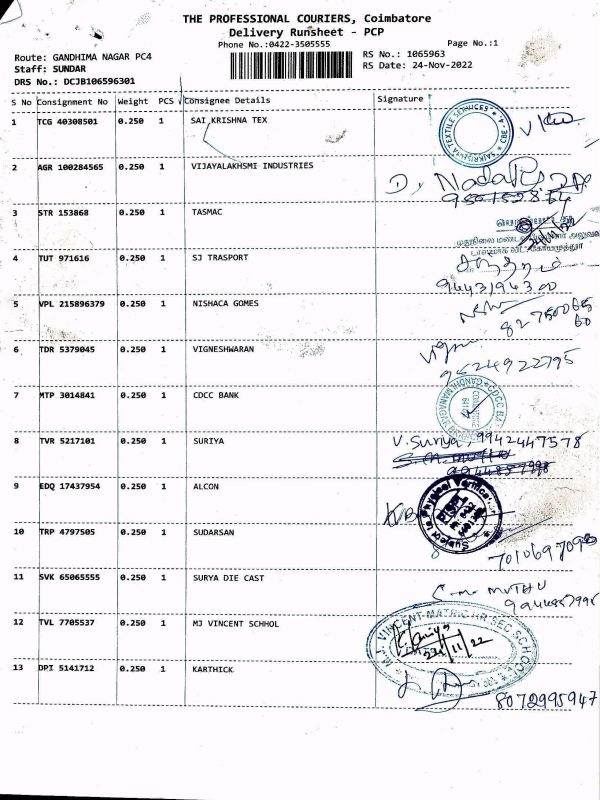 THE PROFESSIONAL COURIERS, Coimbatore
Delivery Runsheet - PCP
Phone No.:0422-3505555
Page No.:1
Route: GANDHIMA NAGAR PC4
RS No.: 1065963
Staff: SUNDAR
RS Date: 24-Nov-2022
DRS No.: DCJB106596301
S No Consignment No Weight PCS Consignee Details Signature
1 TCG 40308501 0.250 1 SAI KRISHNA TEX
SAIKRISHNA TEXTILE SERVICES * CBE
2 AGR 100284565 0.250 1 VIJAYALAKHSMI INDUSTRIES
D.
3 STR 153868 0.250 1 TASMAC
4 TUT 971616 0.250 1 SJ TRASPORT
5 VPL 215896379 0.250 1 NISHACA GOMES
82750065
60
6 TDR 5379045 0.250 1 VIGNESHWARAN
9524922795
7 MTP 3014841 0.250 1 CDCC BANK
8 TVR 5217101 0.250 1 SURIYA
V. Suriya, 9942447578
9 EDQ 17437954 0.250 1 ALCON
Subject to Physical Verification
10 TRP 4797505 0.250 1 SUDARSAN
7010697098
11 SVK 65065555 0.250 1 SURYA DIE CAST
MUTHU
12 TVL 7705537 0.250 1 MJ VINCENT SCHHOL
M.J. VINCENT MATRIC HR SEC SCHOOL
13 DPI 5141712 0.250 1 KARTHICK
8072995947